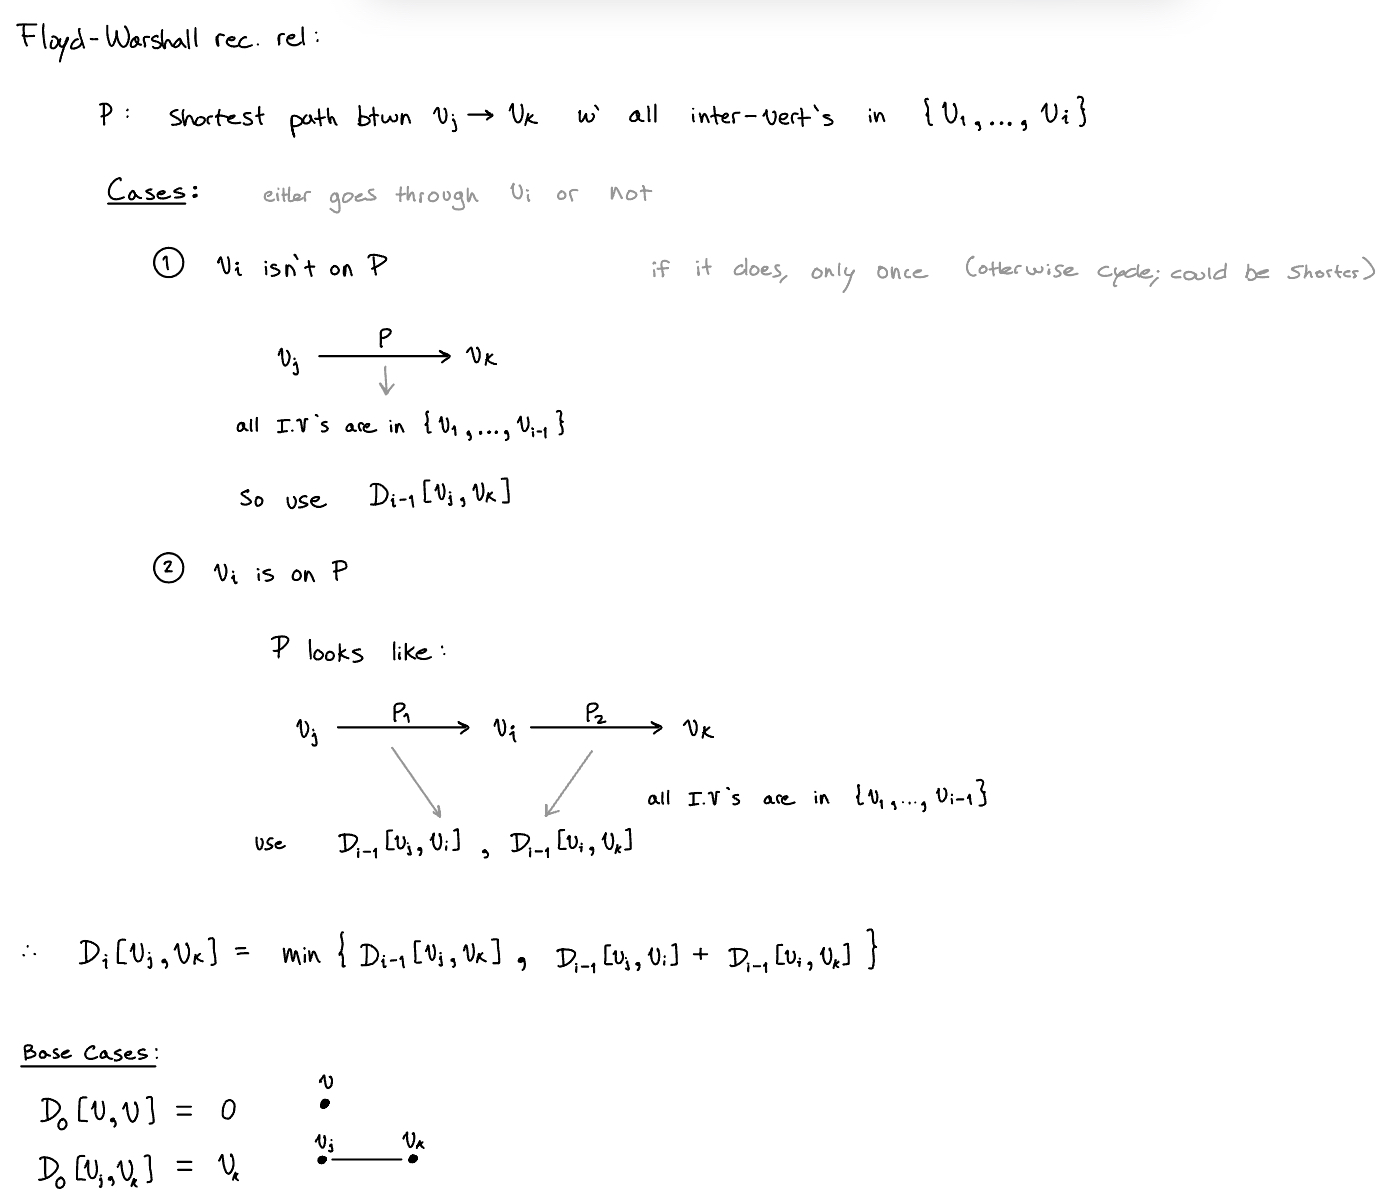 Floyd-Warshall rec. rel:
P: Shortest path btwn Vj → Vk w' all inter-vert's in {V1,..., Vi}
Cases: either goes through Vi or not
① Vi isn't on P if it does, only once (otherwise cycle; could be shorter)
P
Vj → Vk
all I.V's are in {V1,..., Vi-1}
So use Di-1[Vj, Vk]
② Vi is on P
P looks like:
P1 P2
Vj → Vi → Vk
all I.V's are in {V1,..., Vi-1}
use Di-1[Vj, Vi], Di-1[Vi, Vk]
∴ Di[Vj, Vk] = min { Di-1[Vj, Vk], Di-1[Vj, Vi] + Di-1[Vi, Vk] }
Base Cases:
V
D0[V, V] = 0
Vj Vk
D0[Vj, Vk] = Vk